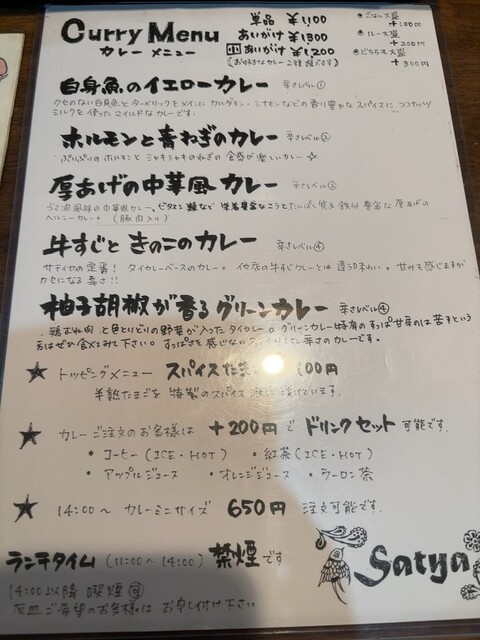 Curry Menu
カレー メニュー
単品 ¥1,100
あいがけ ¥1,300
小あいがけ ¥1,200
(お好きなカレー2種選べます)
◎ごはん大盛
+100円
◎ルー大盛
+200円
◎どちらも大盛
+300円
白身魚のイエローカレー 辛さレベル①
クセのない白身魚とターメリックをメインにカルダモン・シナモンなどの香り豊かなスパイスにココナッツ
ミルクを使ったマイルドなカレーです。
ホルモンと青ねぎのカレー 辛さレベル②
ぷりぷりのホルモンとシャキシャキのねぎの食感が楽しいカレー☆
厚あげの中華風カレー 辛さレベル③
ゴマ油風味の中華風カレー。ビタミン類など栄養豊富なニラとたんぱく質鉄分豊富な厚あげの
ヘルシーカレー。(豚肉入り)
牛すじときのこのカレー 辛さレベル④
サティヤの定番!タイカレーベースのカレー。他店の牛すじカレーとは違う味わい。甘みも感じますが
クセになる辛さ!!
柚子胡椒が香るグリーンカレー 辛さレベル④
鶏むね肉と色とりどりの野菜が入ったタイカレー。グリーンカレー特有のすっぱ甘辛のは苦手という
方はぜひ食べてみて下さい。すっぱさを感じない 辛さのカレーです。
★ トッピングメニュー スパイスたま 100円
半熟たまごを特製のスパイス に漬けています。
★ カレーご注文のお客様は +200円でドリンクセット可能です。
・コーヒー(ICE・HOT) ・紅茶(ICE・HOT)
・アップルジュース ・オレンジジュース ・ウーロン茶
★ 14:00〜 カレーミニサイズ 650円 注文可能です。
ランチタイム(11:00〜14:00)禁煙です
14:00以降 喫煙可
灰皿ご希望のお客様はお申し付け下さい
Satya